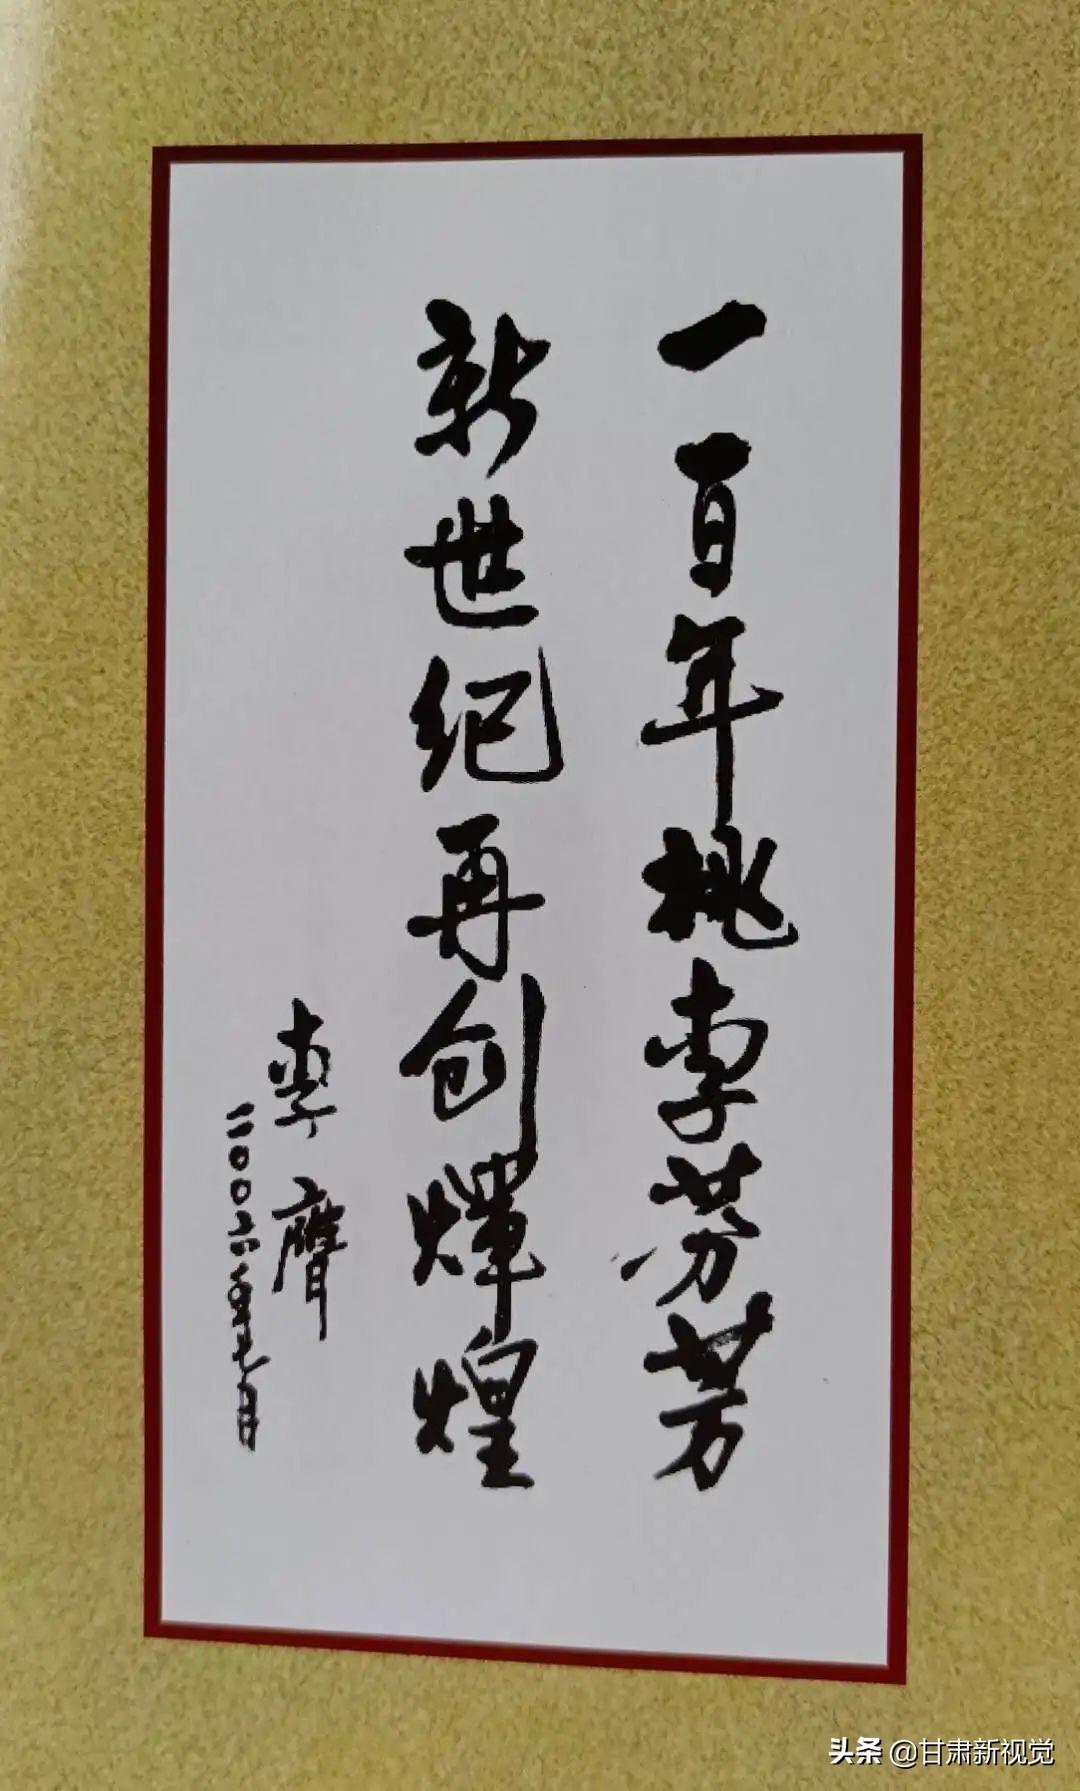 一百年桃李芬芳
新世纪再创輝煌
李膺
二〇〇六年七月
头条 @甘肃新视觉